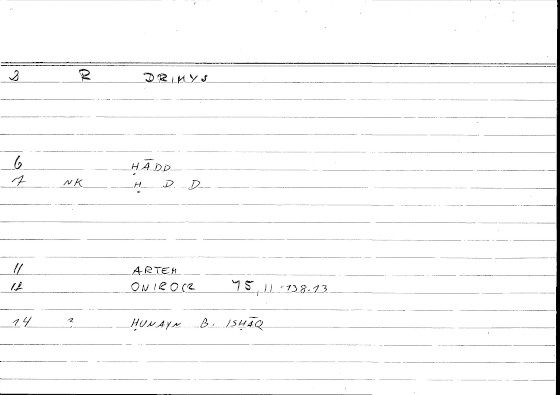 3 R DRIMYS
6 ḤĀDD
7 NK Ḥ D D
11 ARTEM
12 ONIROCR 75,11-138.13
14 ? ḤUNAYN B. ISḤĀQ